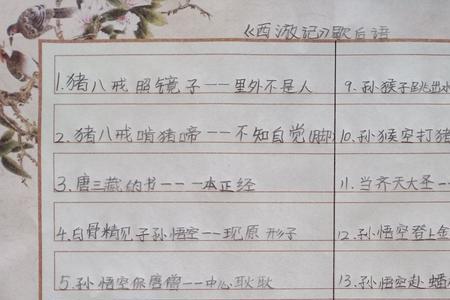 《西游记》歇后语
1.猪八戒照镜子——里外不是人
2.猪八戒啃猪蹄——不知自觉(脚
3.唐三藏的书——一本正经
4.白骨精见孑孙悟空——现原形孑
5.孙悟空保唐僧——中心耿耿
9.孙猴子跳出水
10.孙猴空打猪
11.当齐天大圣—
12.孙悟空登上金
13.孙悟空赴蟠